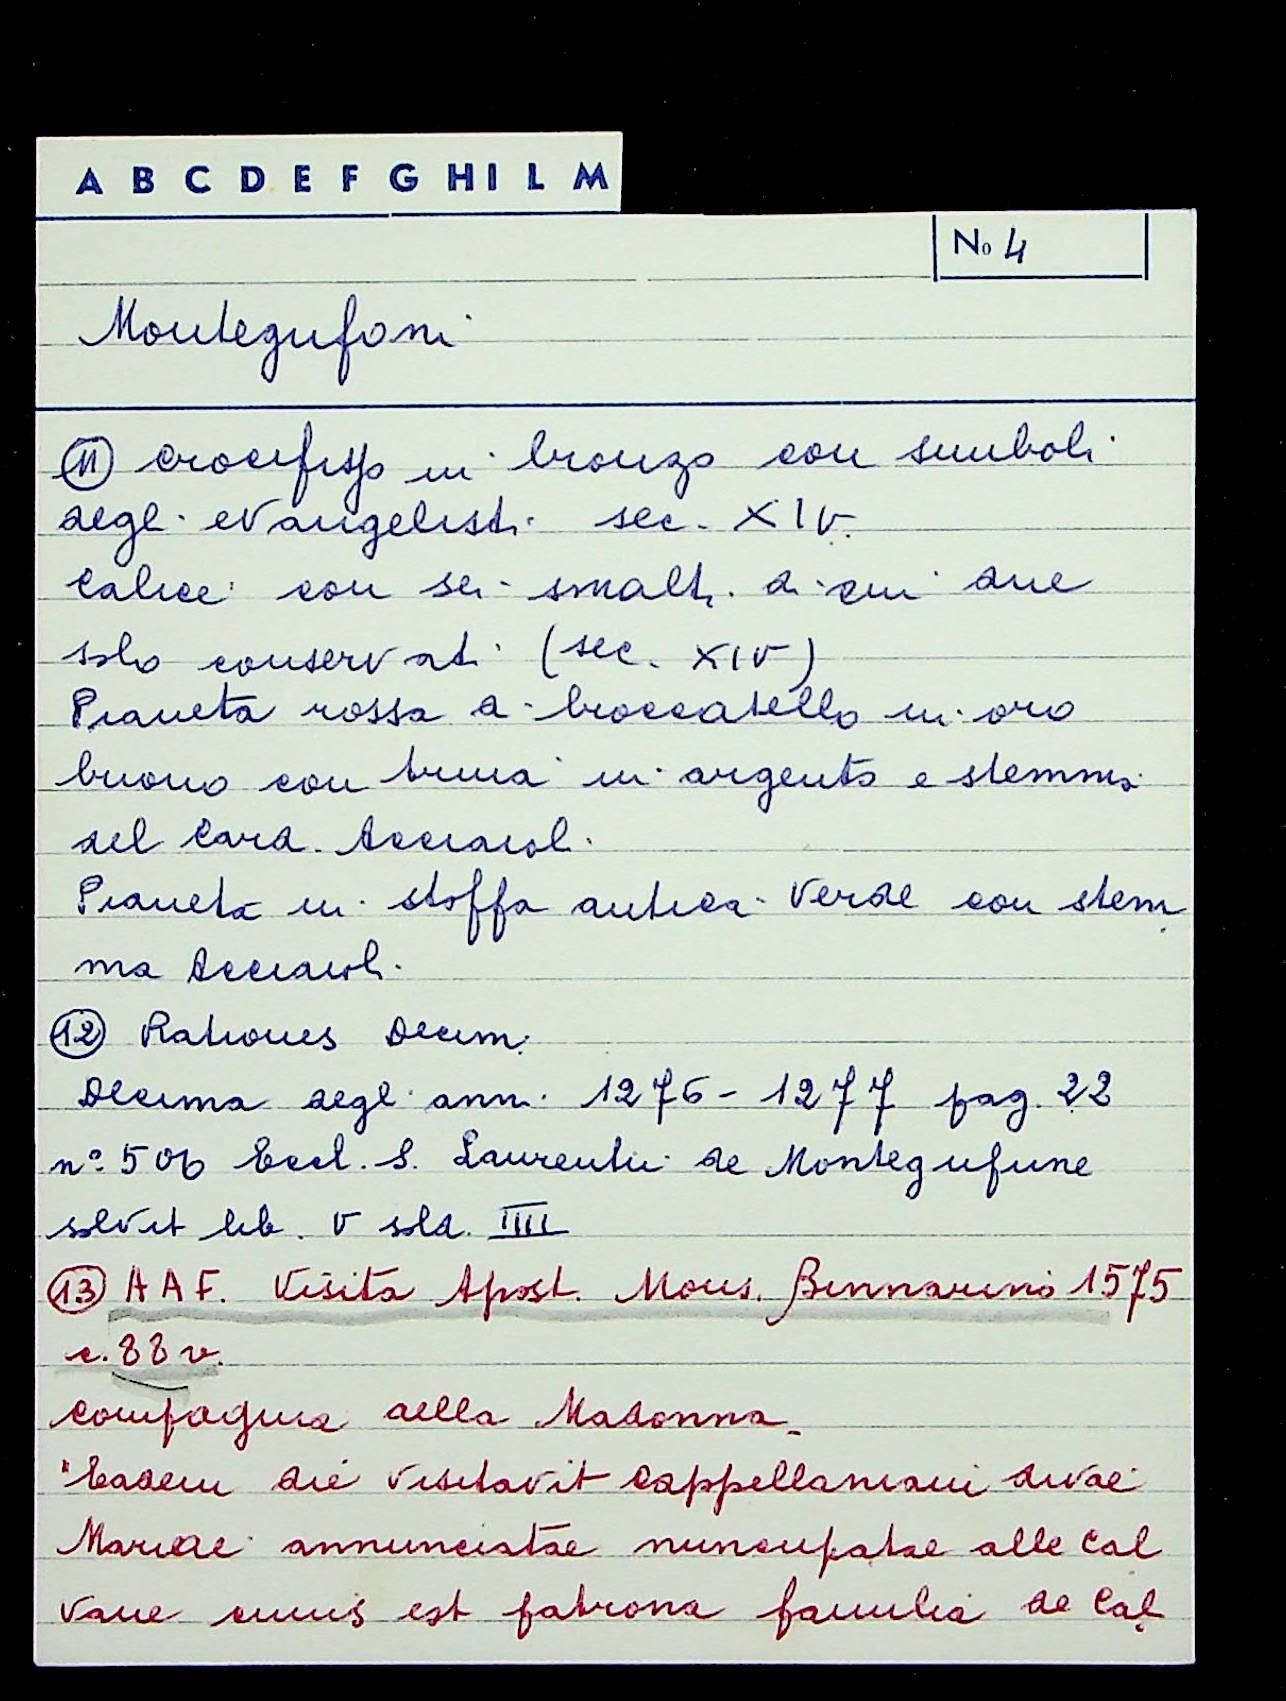 A B C D E F G H I L M
No 4
Montegufoni
⑪ Crocifisso in bronzo con simboli
degli evangelisti sec. XIV.
Calice con sei smalti di cui due
solo conservati (sec. XIV)
Pianeta rossa di broccatello in oro
buono con trina in argento e stemma
del Card. Acciaioli.
Pianeta in stoffa antica verde con stem
ma Acciaioli.
⑫ Rationes Decim.
Decima degli ann. 1276-1277 pag. 22
n° 506 Eccl. S. Laurentii de Montegufune
solvit lib. V sold. IIII
⑬ A A F. Visita Apost. Mons. Binnarino 1575
c. 88 v.
Compagnia della Madonna
"Eadem die visitavit cappellaniam divae
Mariae annunciatae nuncupatae alle Cal
vane cuius est patrona familia de Cal